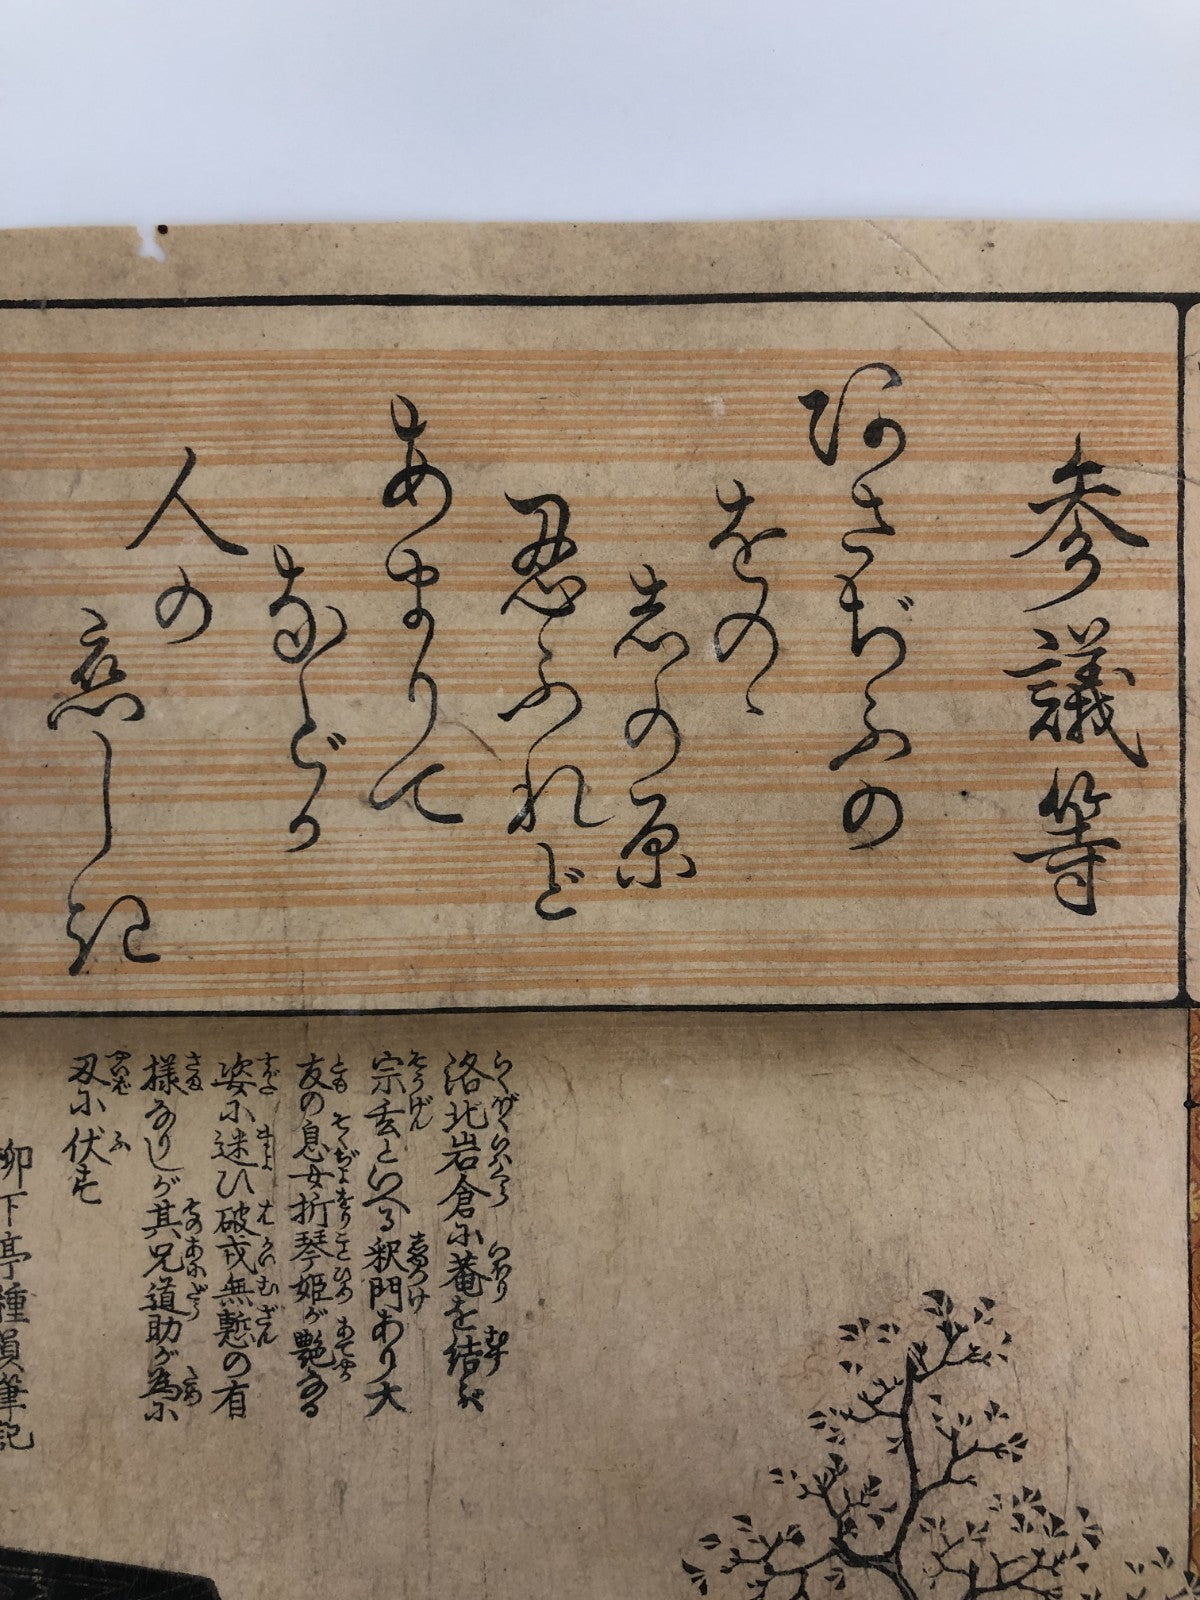 参議等
阿さぢふの
をのゝ
志の原
忍ふれど
あまりて
などか
人の
恋しき
洛北岩倉に菴を結び
宗玄といへる釈門あり大
友の息女折琴姫が艶なる
姿に迷ひ破戒無慙の有
様なりしが其兄道助が為に
刄に伏す
柳下亭種員筆記